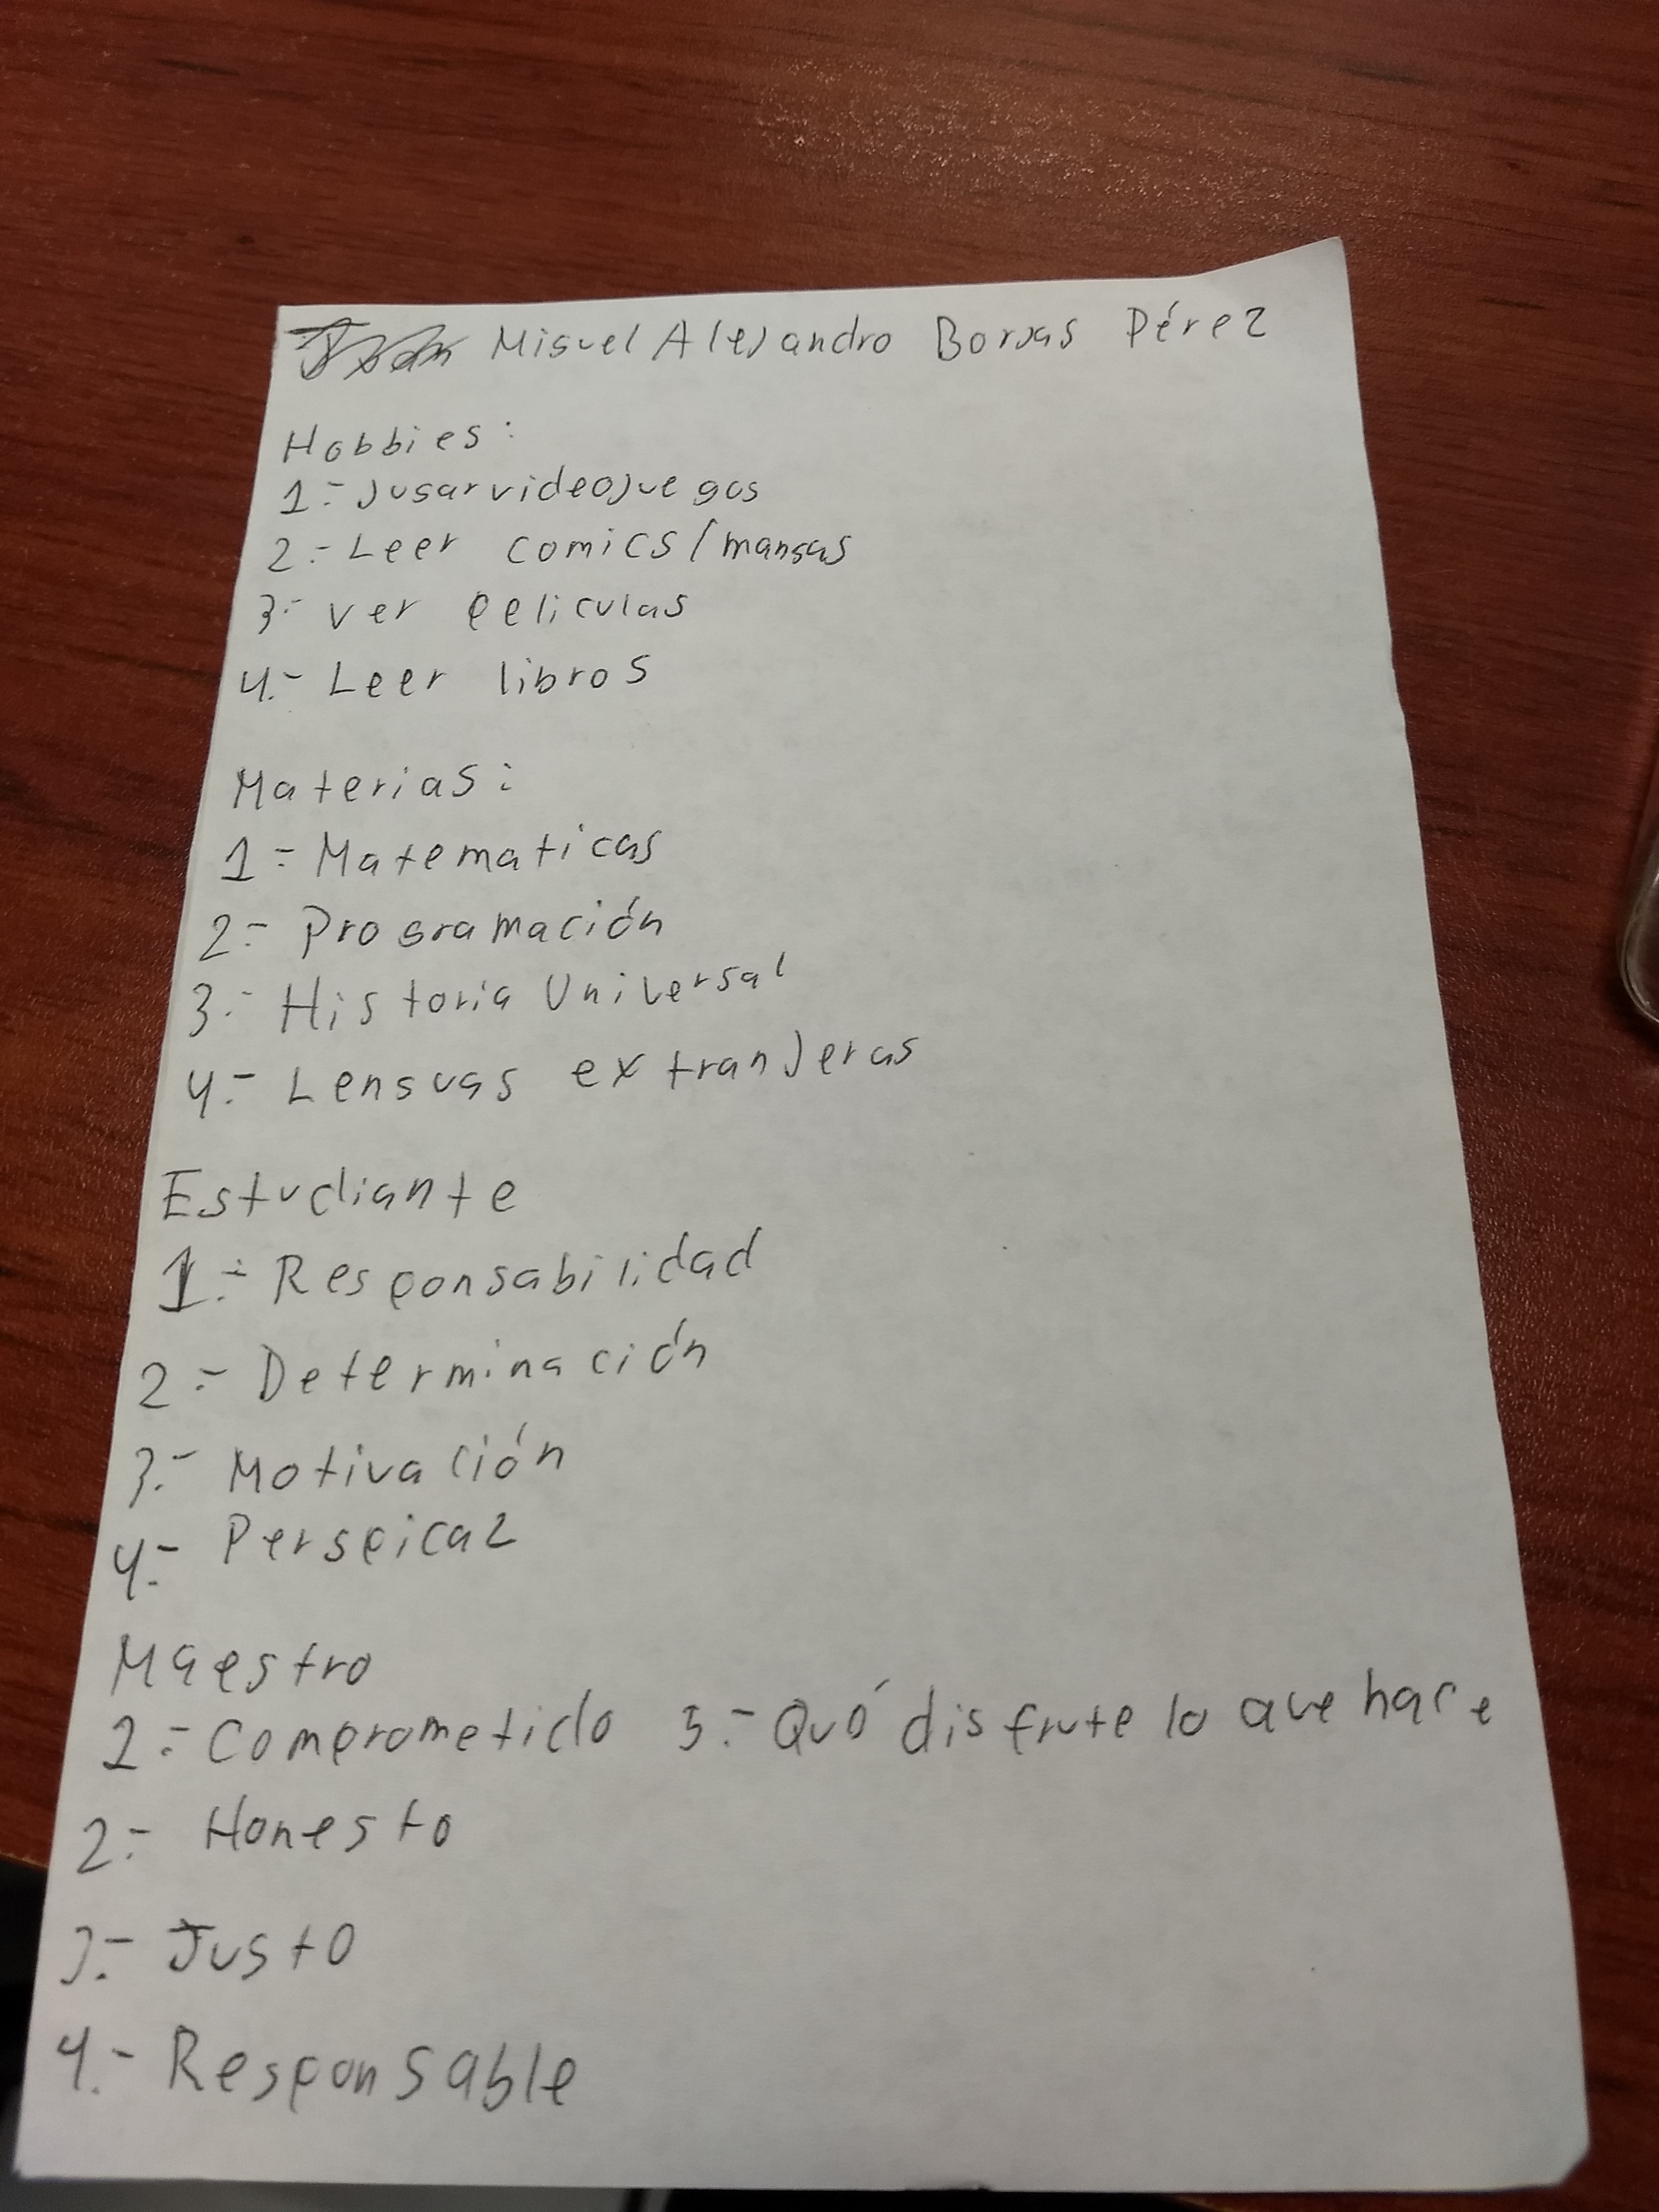 Miguel Alejandro Borjas Pérez
Hobbies:
1.- Jugar videojuegos
2.- Leer comics/mangas
3.- ver peliculas
4.- Leer libros
Materias:
1.- Matematicas
2.- Programación
3.- Historia Universal
4.- Lenguas extranjeras
Estudiante
1.- Responsabilidad
2.- Determinación
3.- Motivación
4.- Perspicaz
Maestro
1.- Comprometido 5.- Qué disfrute lo que hace
2.- Honesto
3.- Justo
4.- Responsable